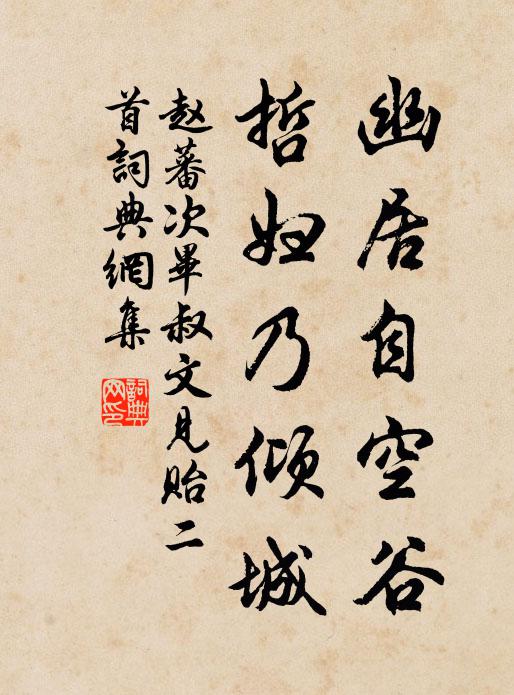 幽居自空谷
哲妇乃倾城
赵蕃次畢叔文見貽二
首詞典網集
詞典網印